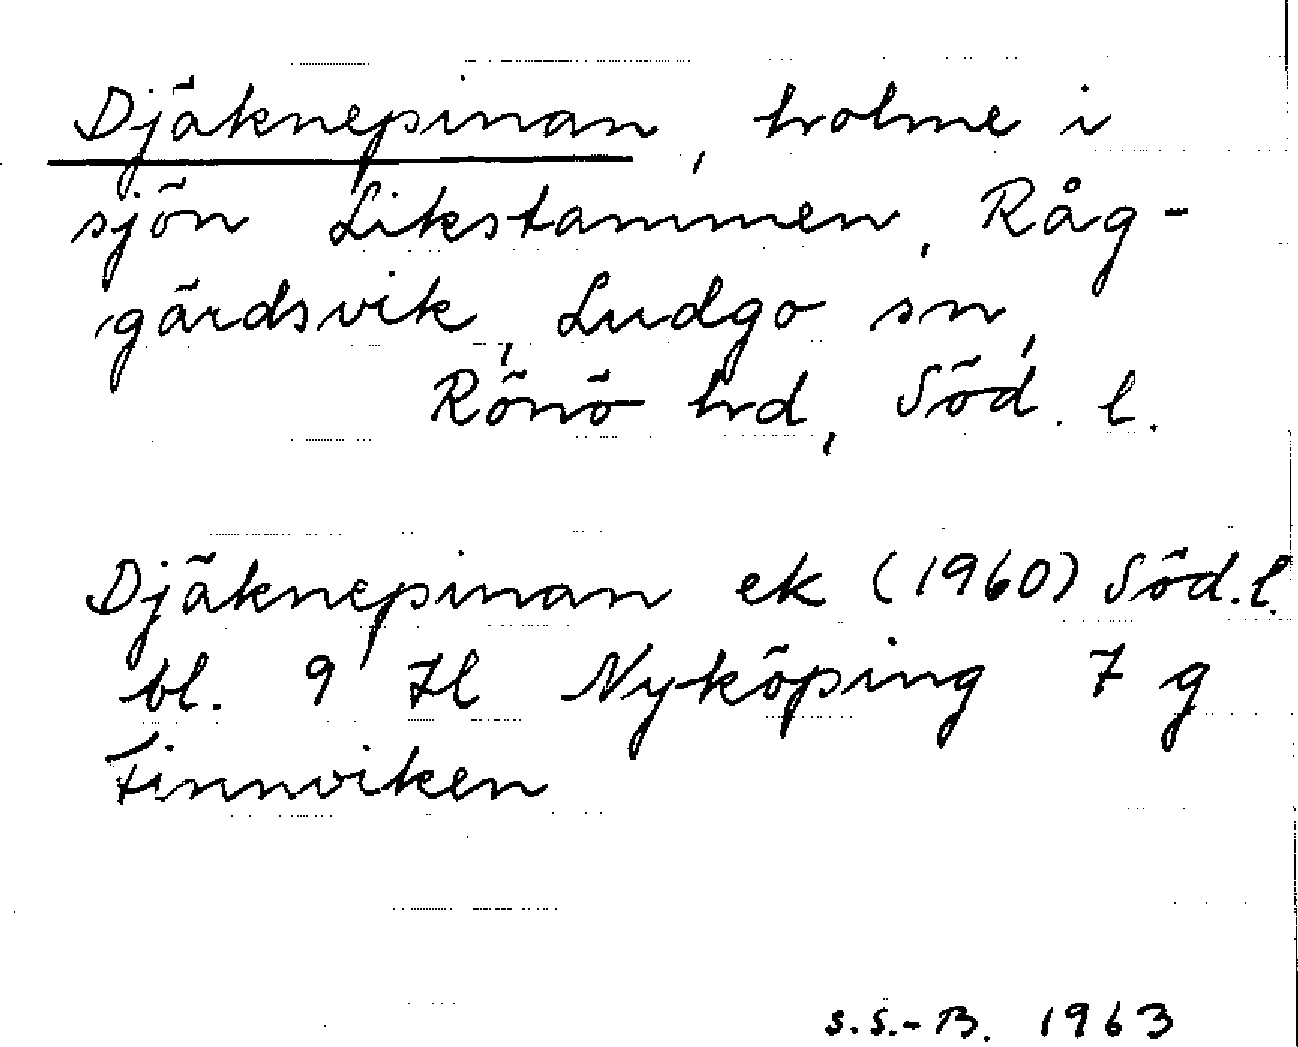 Djäknepinan, holme i
sjön Likstammen, Råg-
gårdsvik, Ludgo sn,
Rönö hd, Söd. l.
Djäknepinan ek (1960) Söd. l.
bl. 9 H Nyköping 7 g
Finnviken
S.S.-B. 1963